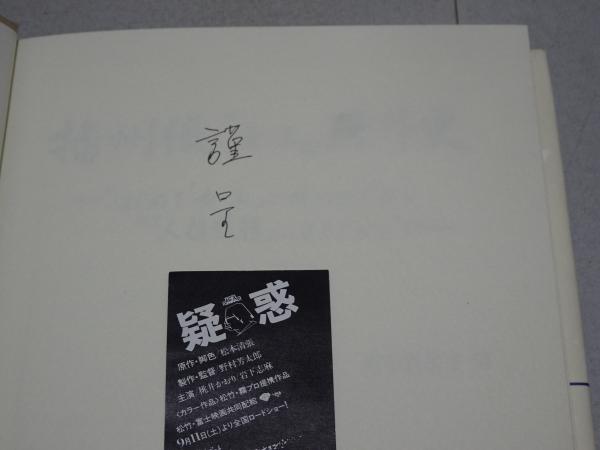 謹
呈
疑惑
原作・脚色／松本清張
製作・監督／野村芳太郎
主演／桃井かおり 岩下志麻
〈カラー作品〉松竹・霧プロ提携作品
松竹・富士映画共同配給
9月11日(土)より全国ロードショー!